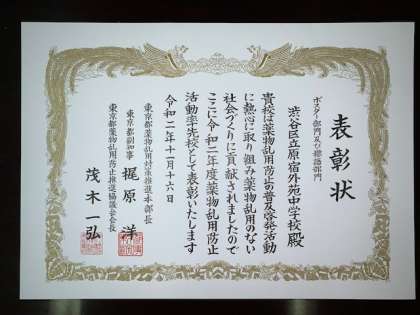 表彰状
ポスター部門及び標語部門
渋谷区立原宿外苑中学校殿
貴校は薬物乱用防止の普及啓発活動
に熱心に取り組み薬物乱用のない
社会づくりに貢献されましたので
ここに令和二年度薬物乱用防止
活動率先校として表彰いたします
令和二年十二月十六日
東京都薬物乱用対策推進本部長
東京都副知事 梶原 洋
東京都薬物乱用防止推進協議会会長
茂木 一弘